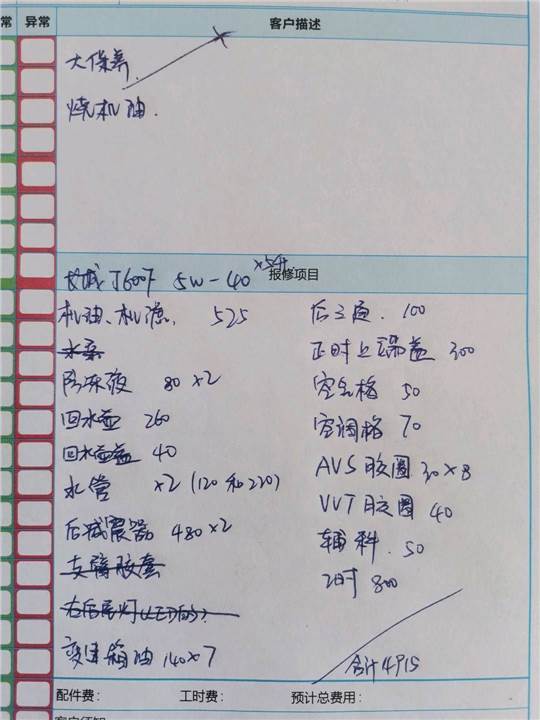 常 异常 客户描述
大保养
烧机油.
长城J600F 5W-40 ×5升
报修项目
机油、机滤. 525
水泵
防冻液 80×2
回水壶 260
回水壶盖 40
水管 ×2 (120和220)
后减震器 480×2
支臂胶套
右后尾灯(LED的)
变速箱油 140×7
后三通. 100
正时上端盖 300
空气格 50
空调格 70
AVS胶圈 30×8
VVT胶圈 40
辅料. 50
工时 800
合计4915
配件费: 工时费: 预计总费用:
客户须知